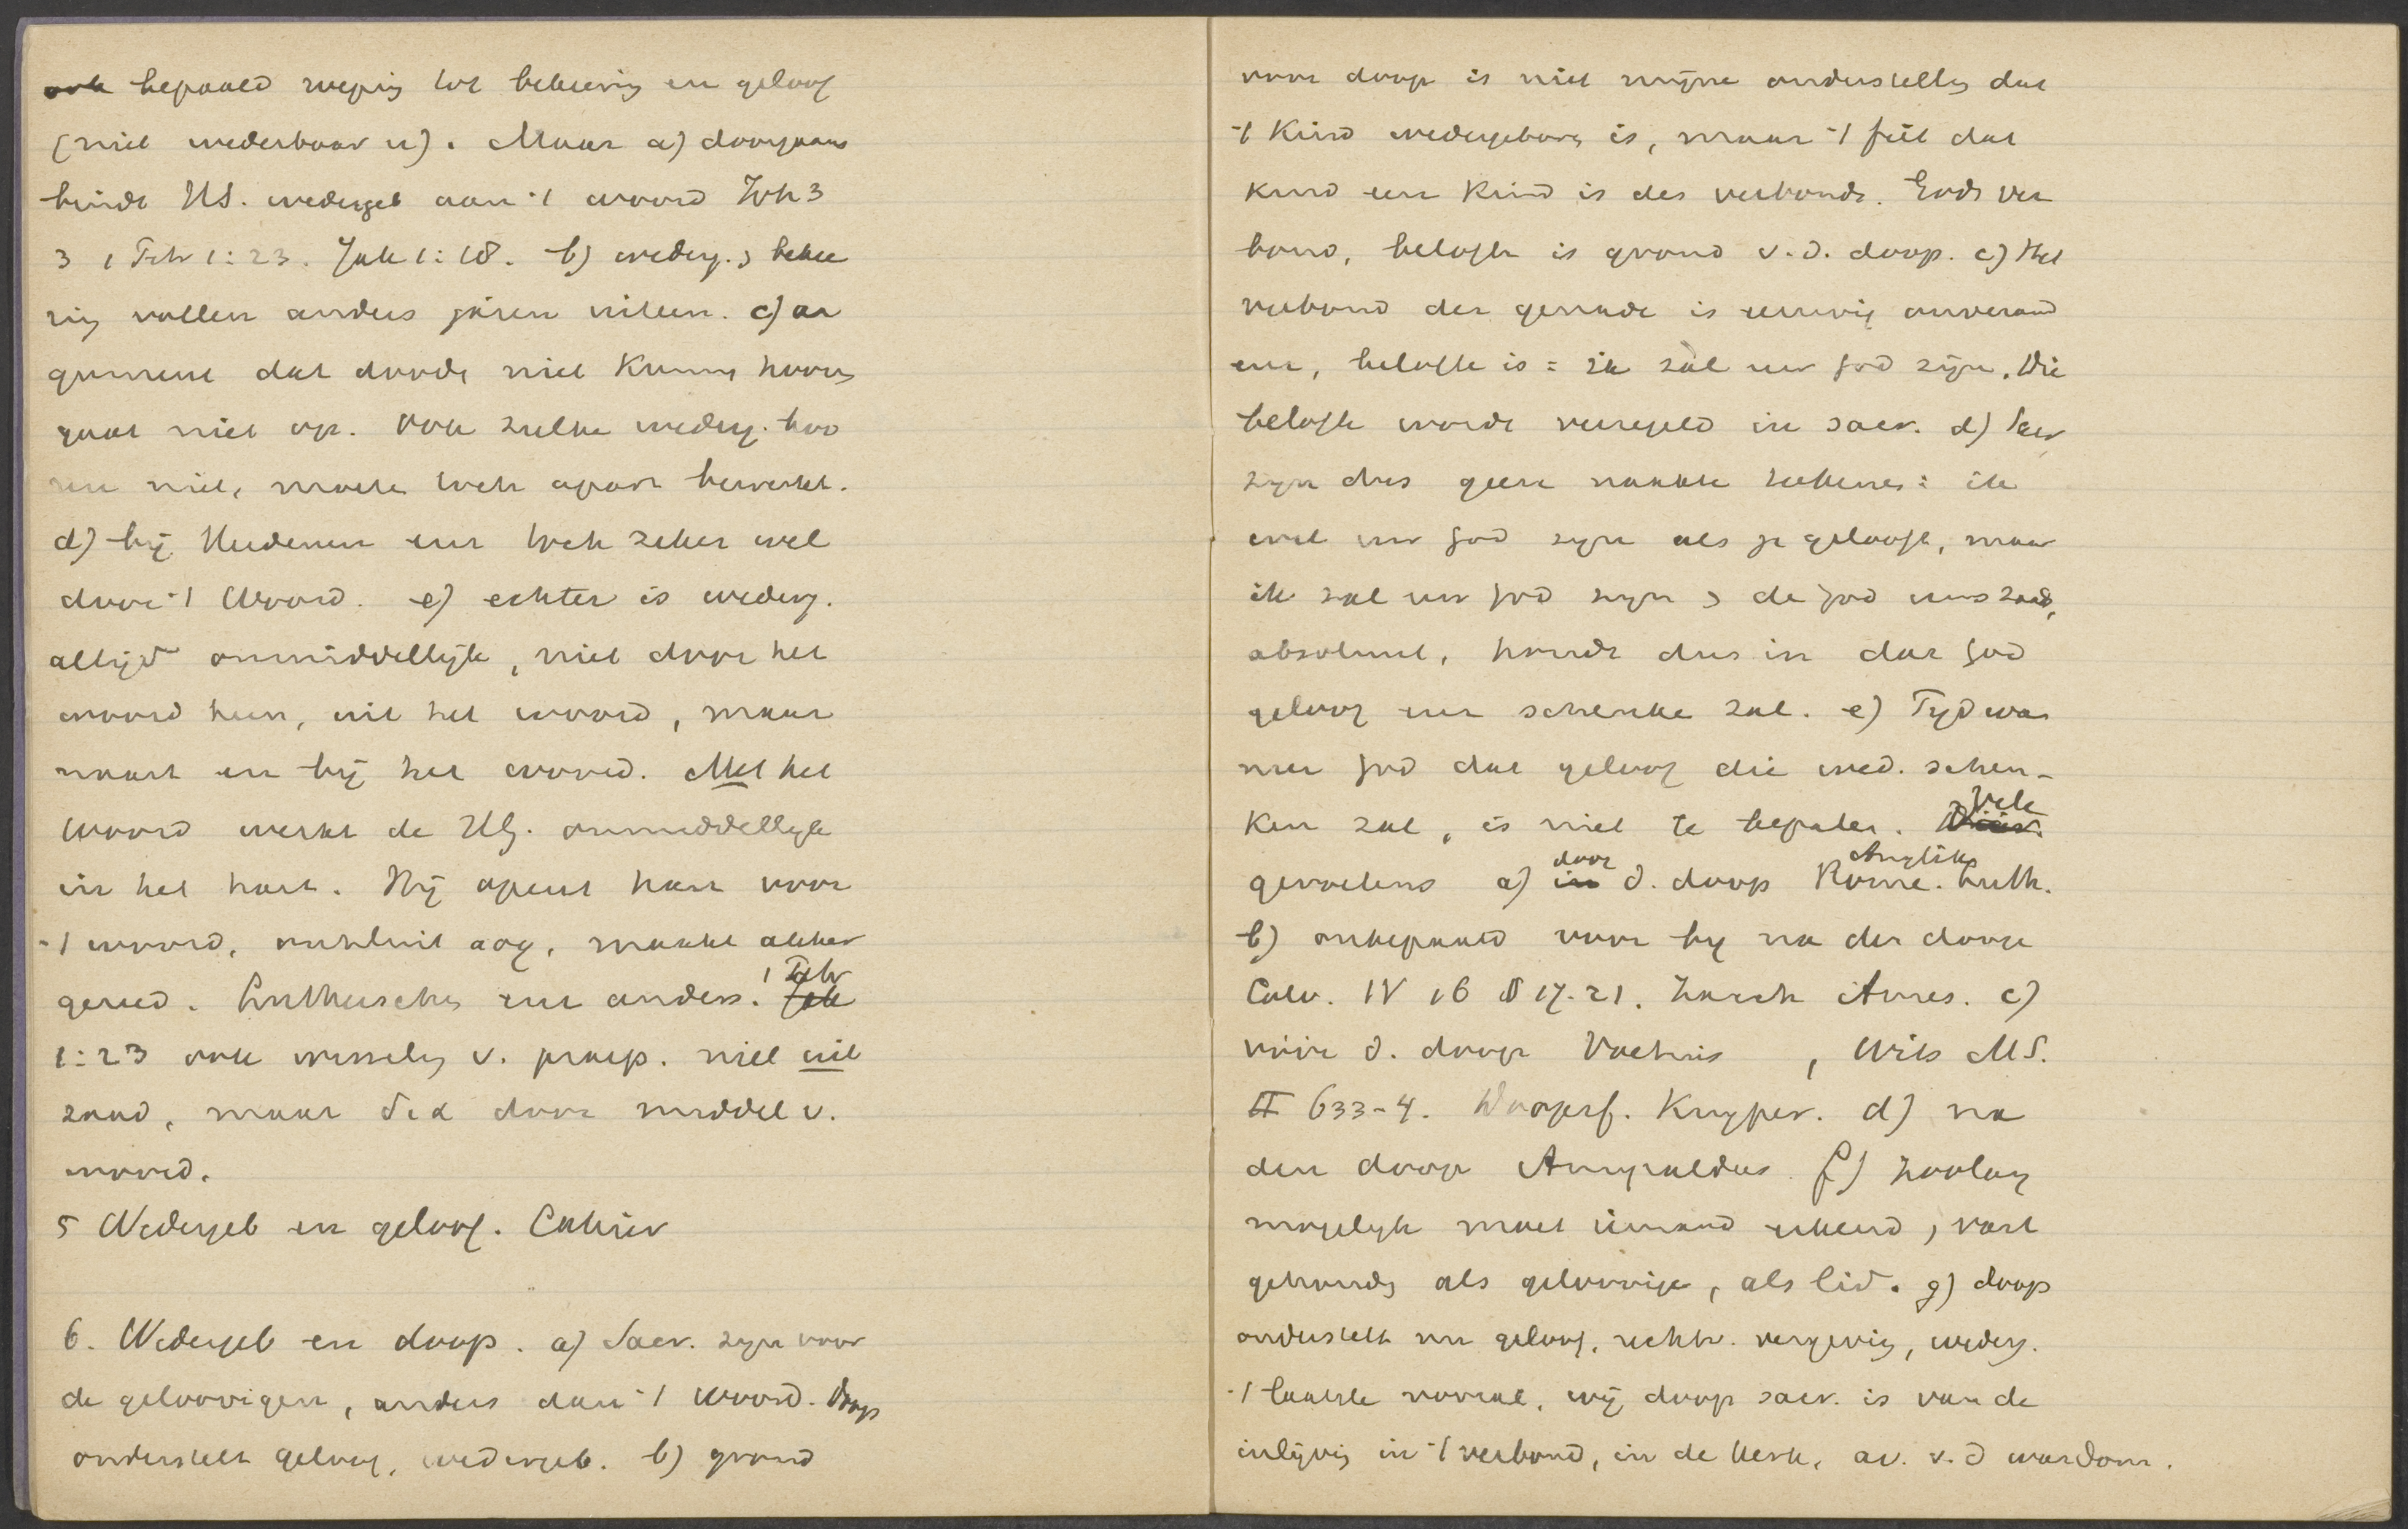 ook bepaald roeping tot bekering en geloof
(niet wederbaar n). Maar a) doorgaans
bindt HS. wedergeb aan 't woord Joh 3
3 1 Petr 1:23. Jak 1:18. b) wederg. & bekee
ring vallen anders gansch uiteen. c) ar
gument dat doode niet kunnen hooren
gaat niet op. Ook zulke wederg. hoo
ren niet, moeten toch apart bewerkt.
d) bij Heidenen eer toch zeker wel
door 't Woord. e) echter is wederg.
altijd onmiddellijk, niet door het
woord heen, uit het woord, maar
naast en bij het woord. Met het
woord werkt de HG. onmiddellijk
in het hart. Hij opent hart voor
't woord, ontsluit oog, maakt akker
gereed. Lutherschen eer anders. 1 Petr
1:23 ook wisseling v. praep. niet uit
zaad, maar δια door middel v.
woord.
5 Wedergeb en geloof. Cahier
6. Wedergeb en doop. a) Sacr. zyn voor
de geloovigen, anders dan 't woord. Doop
onderstelt geloof, wedergeb. b) grond
voor doop is niet mijne onderstelling dat
't Kind wedergeboren is, maar 't feit dat
kind een Kind is des verbonds. Gods ver
bond, belofte is grond v. d. doop. c) Het
verbond der genade is eeuwig onverand
er, belofte is = ik zàl uw God zijn. Die
belofte wordt verzegeld in sacr. d) Sacr
zyn dus geen naakte teekenen: ik
wil uw God zyn als je gelooft, maar
ik zal uw God zyn & de God uws zaads,
absoluut, houdt dus in dat God
geloof eer schenke zal. e) Tyd wan
neer God dat geloof die wed. schen-
ken zal, is niet te bepalen. Vele
gevoelens a) door d. doop Rome. Anglik Luth.
b) onbepaald voor by na den doop
Calv. IV 16 § 17-21. Zanch Ames. c)
vóór d. doop Voetius , Wits M.S.
II 633-4. Doopsf. Kuyper. d) na
den doop Amyraldus. f) zoolang
mogelyk moet iemand erkend, vast
gehouden als geloovige, als lid. g) doop
onderstelt nu geloof, rechtv. vergeving, wederg.
't laatste vooral, wij doop sacr. is van de
inlijving in 't verbond, in de kerk, av. v. d wasdom.